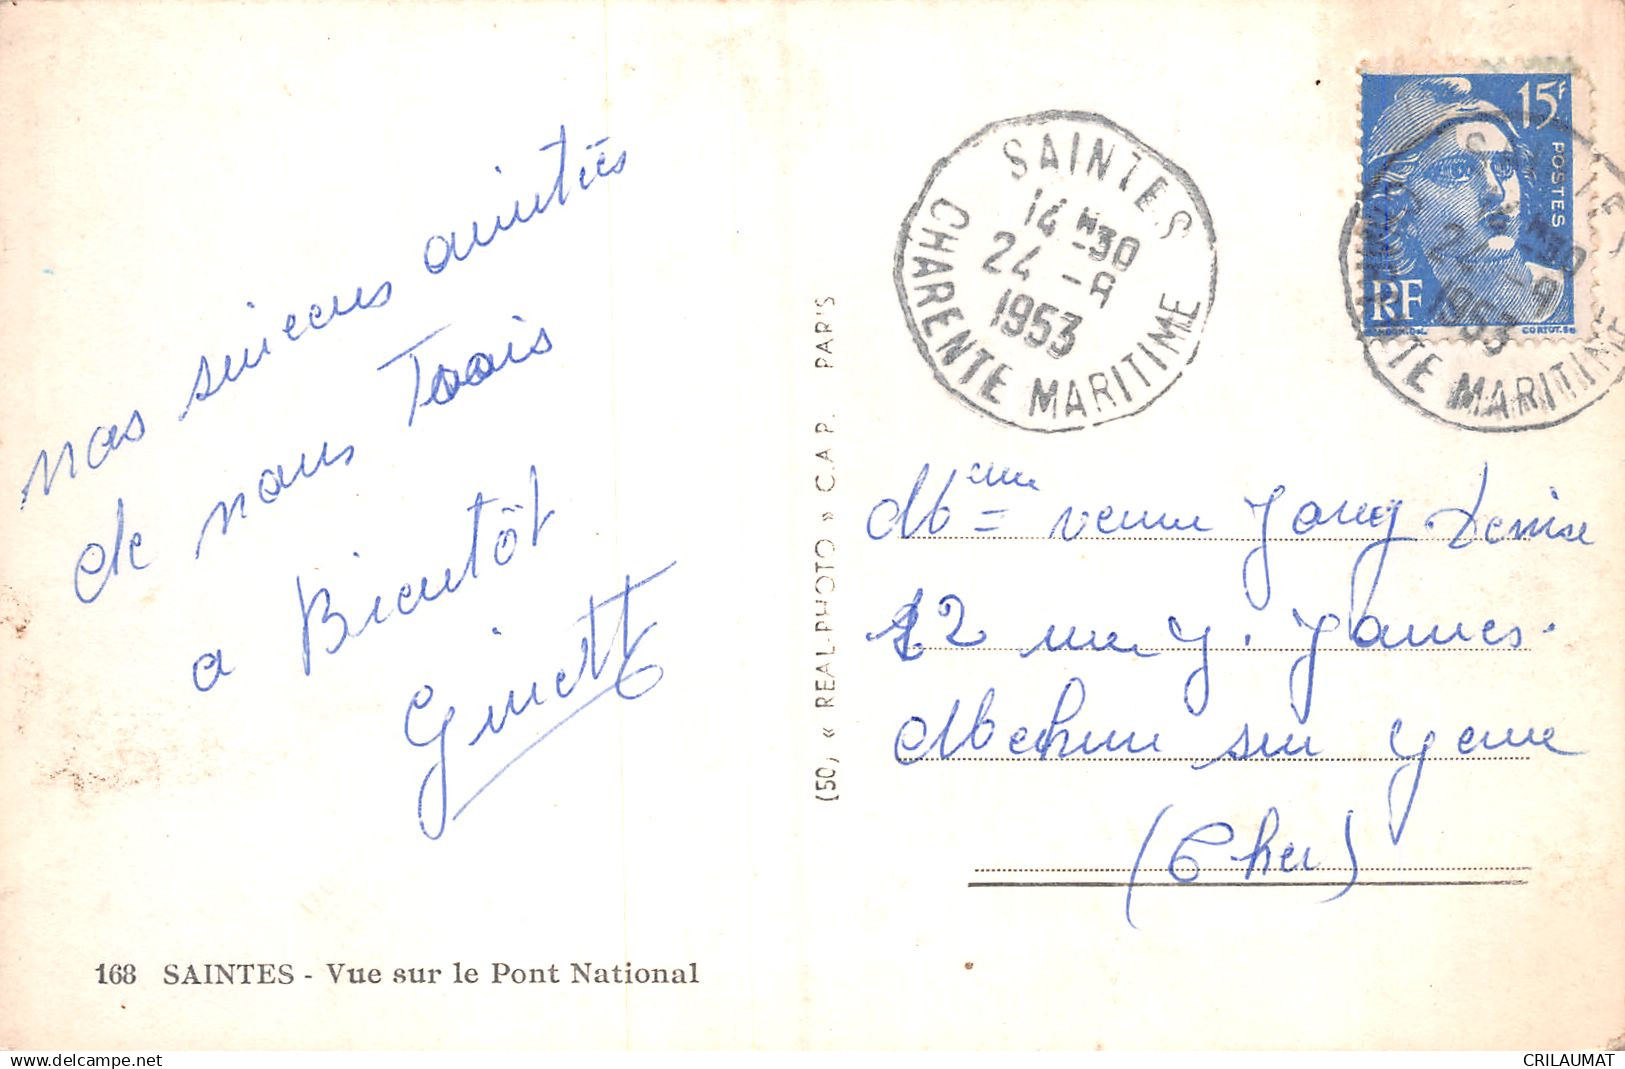 nos sincères amitiés
de nous Trois
a Bientôt
Ginette
168 SAINTES - Vue sur le Pont National
(50) « REAL-PHOTO » C.A.P. PARIS
SAINTES
14 H 30
24 -8
1953
CHARENTE MARITIME
15F
POSTES
RF
CORTOT.SC
SAINTES
14 H 30
24 -8
1953
CHARENTE MARITIME
Mme veuve Denise
12 rue J. Jaurès.
Mehun sur Yèvre
(Cher)
www.delcampe.net
CRILAUMAT